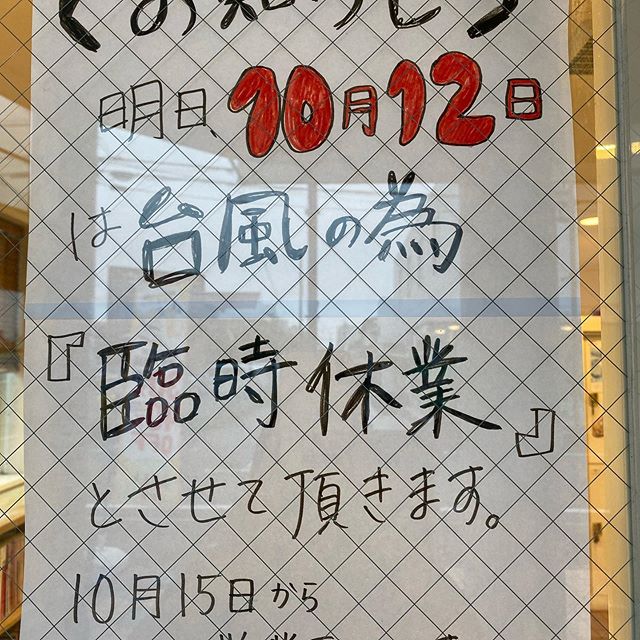 《お知らせ》
明日、10月12日
は台風の為
『臨時休業』
とさせて頂きます。
10月15日から